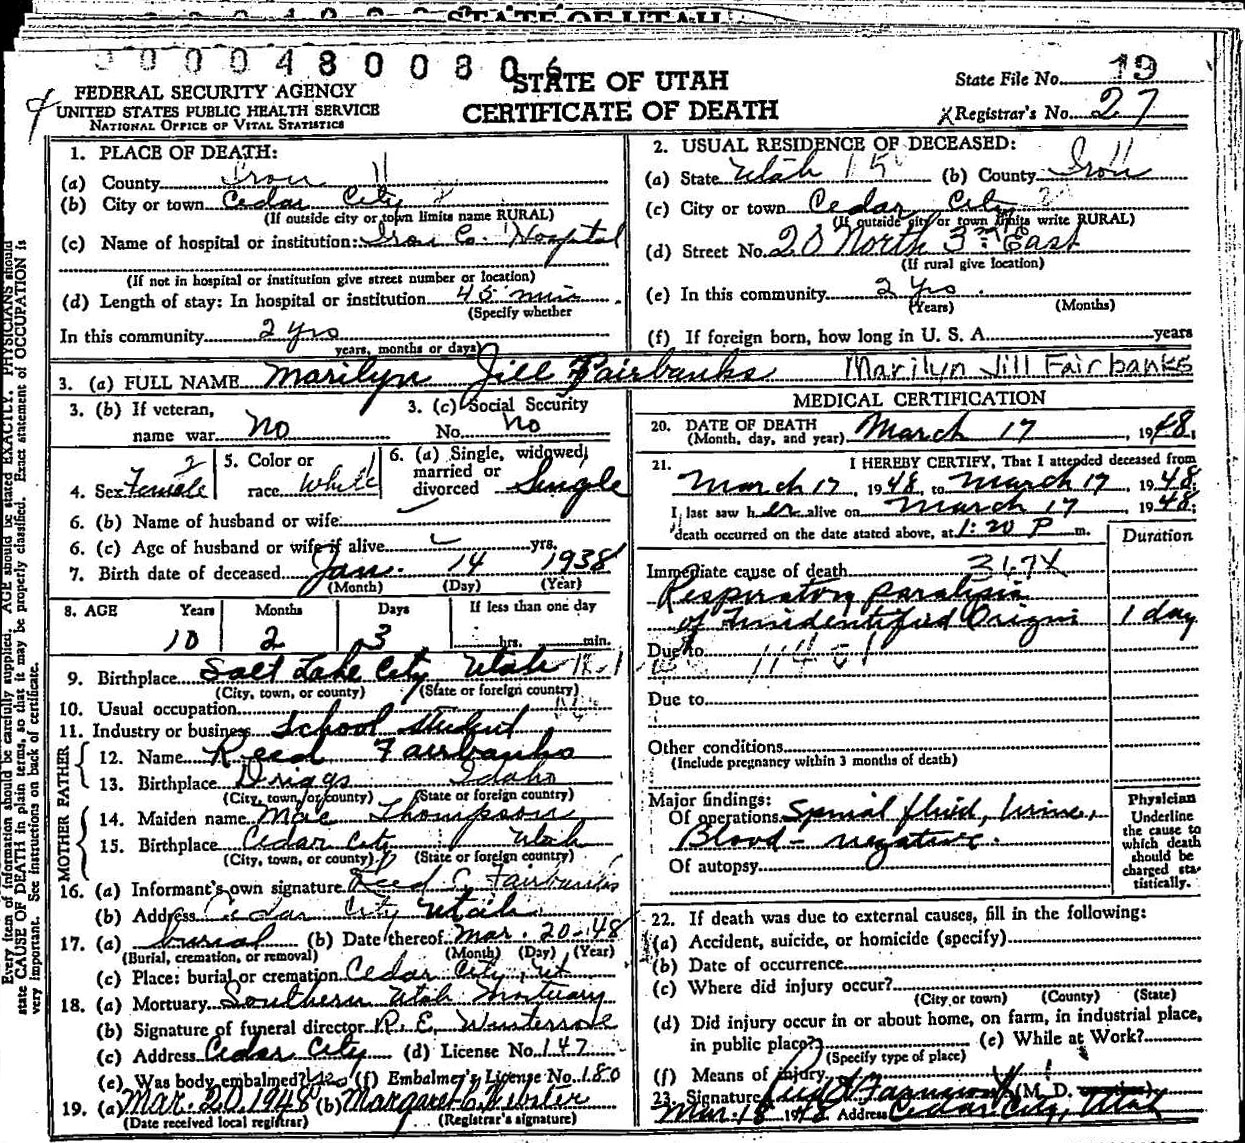 STATE OF UTAH
00004800806
STATE OF UTAH
CERTIFICATE OF DEATH
FEDERAL SECURITY AGENCY
UNITED STATES PUBLIC HEALTH SERVICE
NATIONAL OFFICE OF VITAL STATISTICS
State File No. 19
Registrar's No. 27
1. PLACE OF DEATH:
(a) County Iron 11
(b) City or town Cedar City 2
(If outside city or town limits name RURAL)
(c) Name of hospital or institution: Iron Co. Hospital
(If not in hospital or institution give street number or location)
(d) Length of stay: In hospital or institution 45 min
(Specify whether
In this community 2 yrs
years, months or days)
2. USUAL RESIDENCE OF DECEASED:
(a) State Utah (b) County Iron
(c) City or town Cedar City
(If outside city or town limits write RURAL)
(d) Street No. 20 North 3rd East
(If rural give location)
(e) In this community 2 yrs.
(Years) (Months)
(f) If foreign born, how long in U. S. A. years
3. (a) FULL NAME Marilyn Jill Fairbanks Marilyn Jill Fairbanks
3. (b) If veteran, name war No
3. (c) Social Security No. No
4. Sex Female 2
5. Color or race White 1
6. (a) Single, widowed, married or divorced Single
6. (b) Name of husband or wife
6. (c) Age of husband or wife if alive yrs.
7. Birth date of deceased Jan. 14 1938
(Month) (Day) (Year)
8. AGE Years Months Days If less than one day
10 2 3 hrs. min.
9. Birthplace Salt Lake City Utah
(City, town, or county) (State or foreign country)
10. Usual occupation
11. Industry or business School student
FATHER
12. Name Reed Fairbanks
13. Birthplace Driggs Idaho
(City, town, or county) (State or foreign country)
MOTHER
14. Maiden name Mae Thompson
15. Birthplace Cedar City Utah
(City, town, or county) (State or foreign country)
16. (a) Informant's own signature Reed C. Fairbanks
(b) Address Cedar City Utah
17. (a) burial (b) Date thereof Mar. 20-48
(Burial, cremation, or removal) (Month) (Day) (Year)
(c) Place: burial or cremation Cedar City, Ut
18. (a) Mortuary Southern Utah Mortuary
(b) Signature of funeral director R. E.
(c) Address Cedar City (d) License No. 147
(e) Was body embalmed? Yes (f) Embalmer's License No. 180
19. (a) Mar. 20, 1948 (b) Margaret C. Webster
(Date received local registrar) (Registrar's signature)
MEDICAL CERTIFICATION
20. DATE OF DEATH
(Month, day, and year) March 17, 1948;
21. I HEREBY CERTIFY, That I attended deceased from
March 17, 1948, to March 17, 1948;
I last saw her alive on March 17 1948;
death occurred on the date stated above, at 1:20 P m.
Duration
Immediate cause of death
Respiratory paralysis
of Unidentified Origin 1 day
Due to
Due to
Other conditions
(Include pregnancy within 3 months of death)
Major findings:
Of operations Spinal fluid, urine,
Blood - negative.
Of autopsy
Physician
Underline
the cause to
which death
should be
charged sta-
tistically.
22. If death was due to external causes, fill in the following:
(a) Accident, suicide, or homicide (specify)
(b) Date of occurrence
(c) Where did injury occur?
(City or town) (County) (State)
(d) Did injury occur in or about home, on farm, in industrial place,
in public place? (e) While at Work?
(Specify type of place)
(f) Means of injury
23. Signature Farnsworth (M. D.
Mar. 18 1948 Address Cedar City, Utah
Every item of information should be carefully supplied. AGE should be stated EXACTLY. PHYSICIANS should
state CAUSE OF DEATH in plain terms, so that it may be properly classified. Exact statement of OCCUPATION is
very important. See instructions on back of certificate.